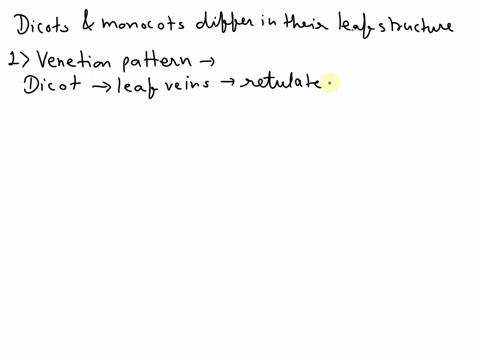 Dicots & monocots differ in their leaf structure
1> Venetion pattern →
Dicot → leaf veins → retulate